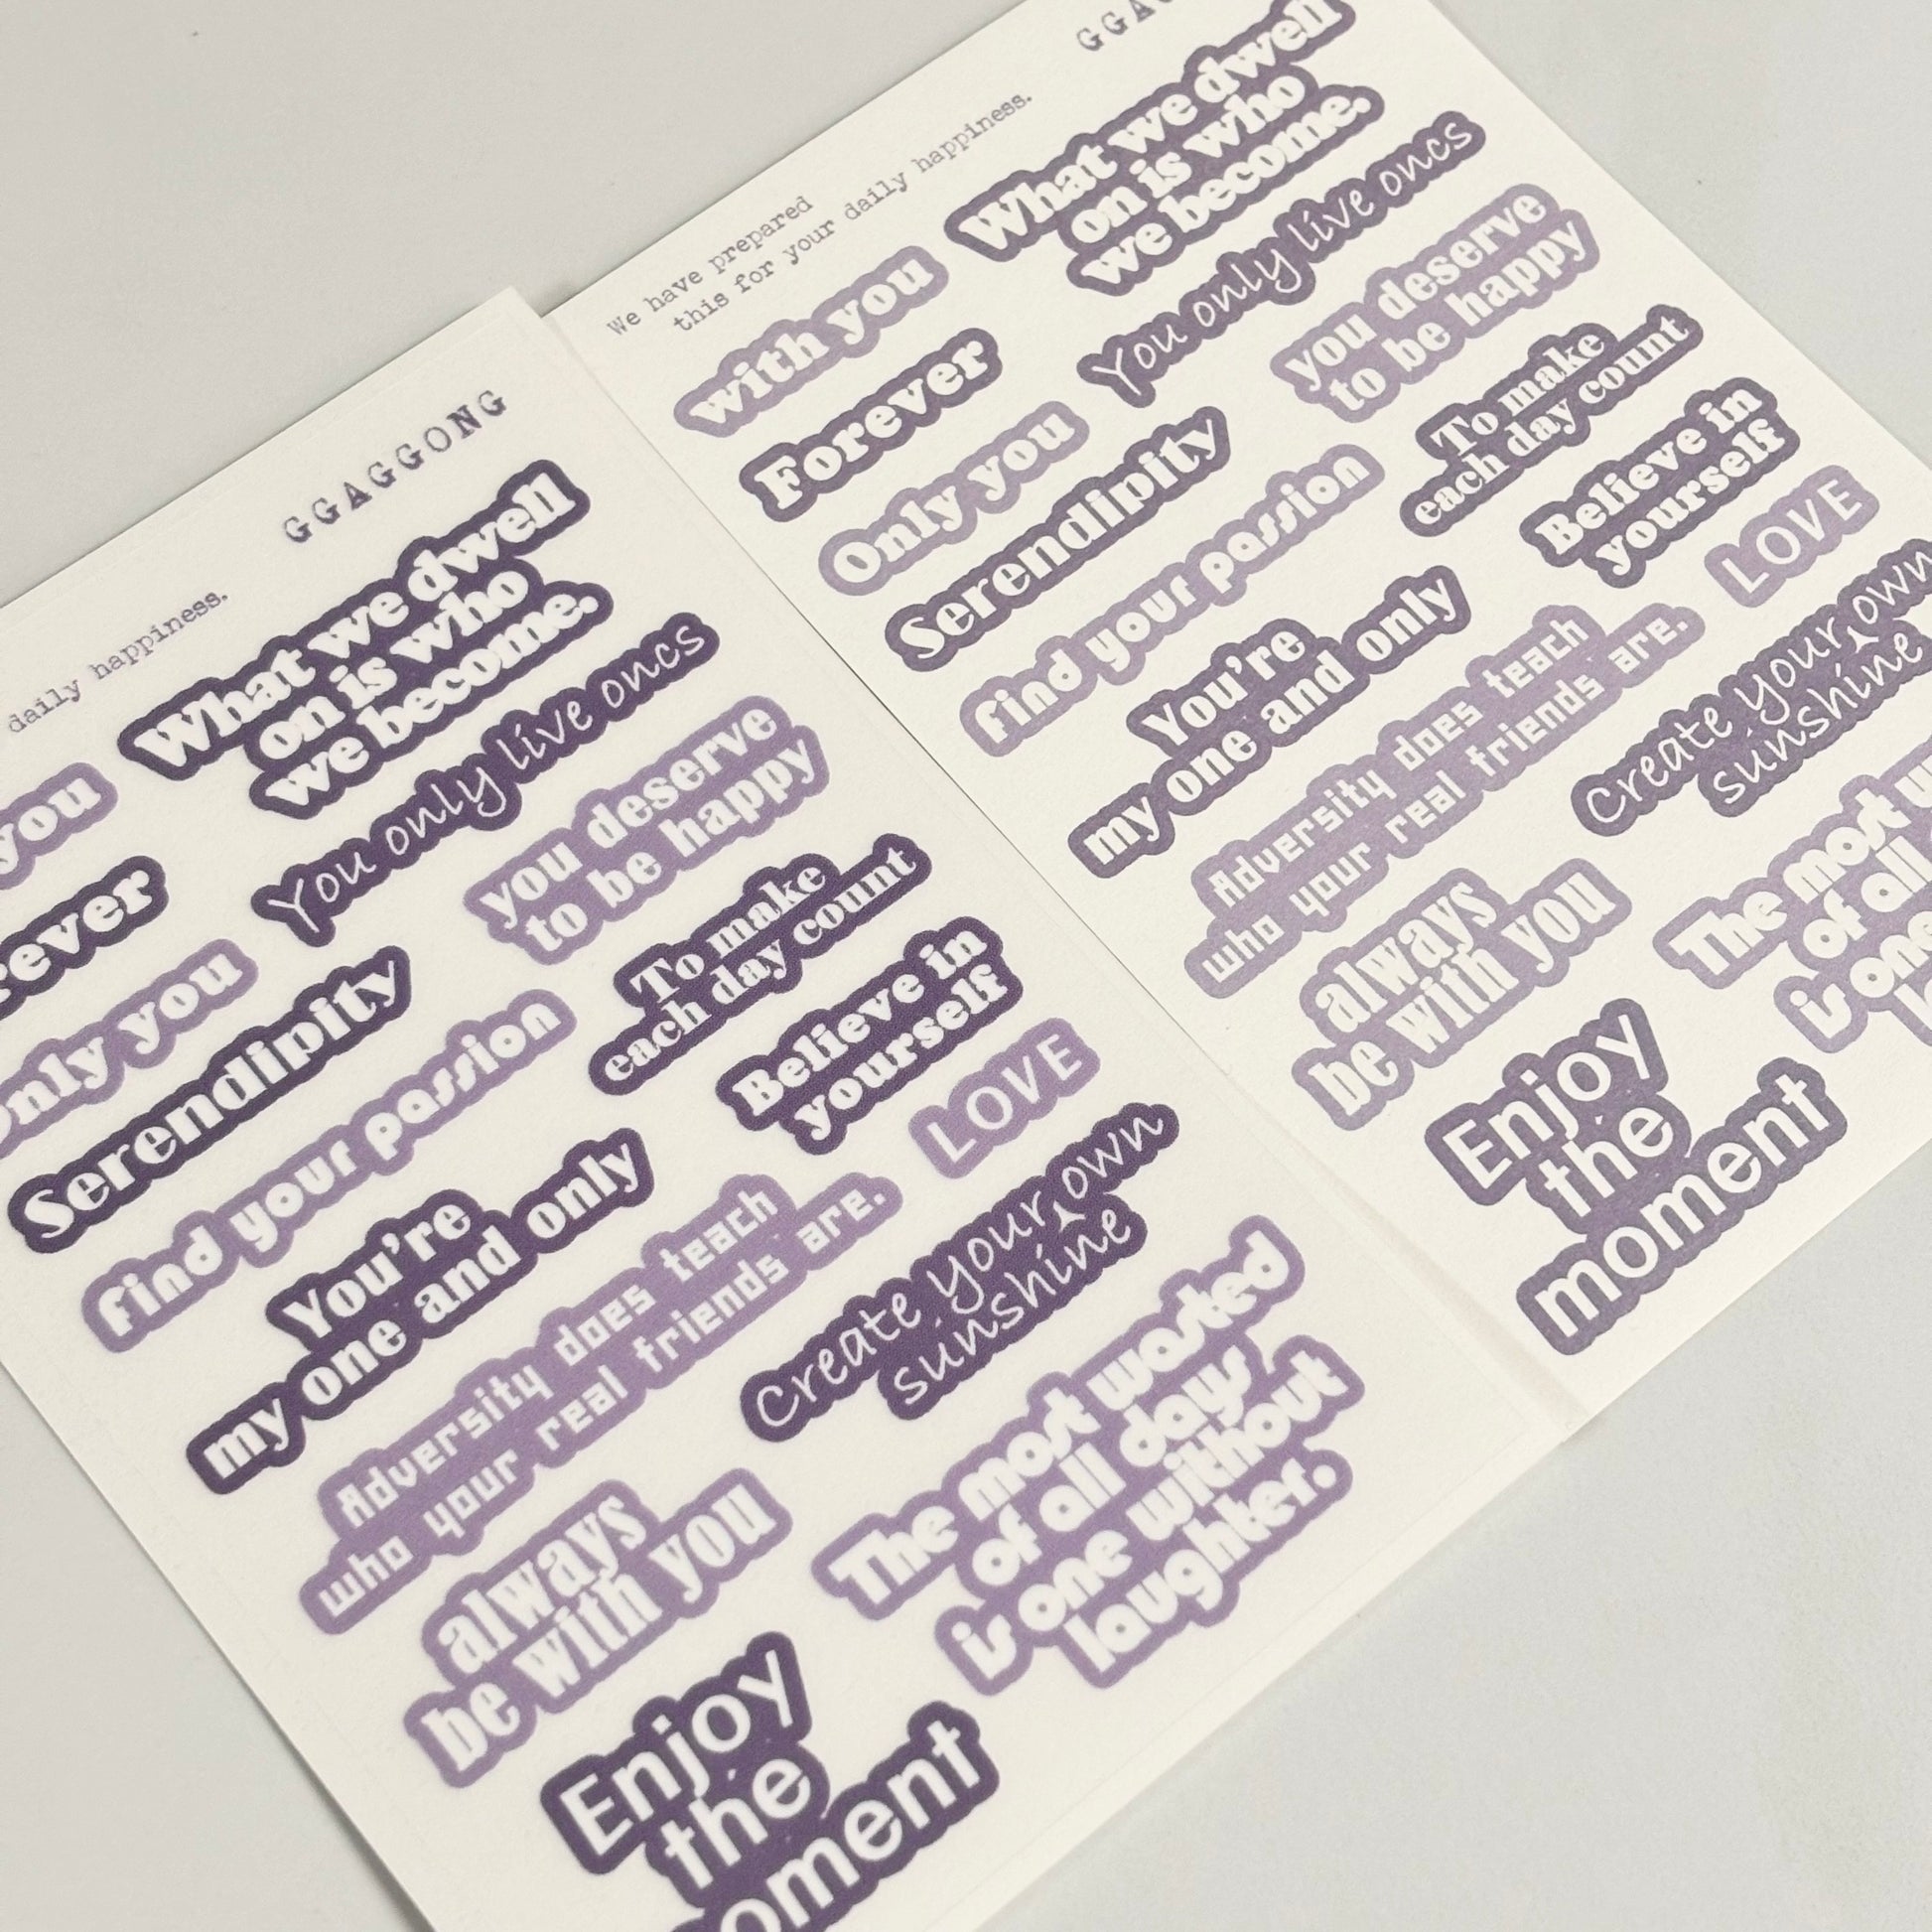 GGAGGONG
daily happiness.
What we dwell
on is who
we become.
you
You only live oncs
rever
you deserve
to be happy
only you
To make
each day count
Serendipity
Believe in
yourself
find your passion
LOVE
You're
my one and only
Create your own
sunshine
Adversity does teach
who your real friends are.
The most wasted
of all days
is one without
laughter.
always
be with you
Enjoy
the
oment
GGAG
We have prepared
this for your daily happiness.
What we dwell
on is who
we become.
with you
You only live oncs
Forever
you deserve
to be happy
Only you
To make
each day count
Serendipity
Believe in
yourself
find your passion
LOVE
You're
my one and only
Create your own
sunshine
Adversity does teach
who your real friends are.
The most w
of all
is one
la
always
be with you
Enjoy
the
moment